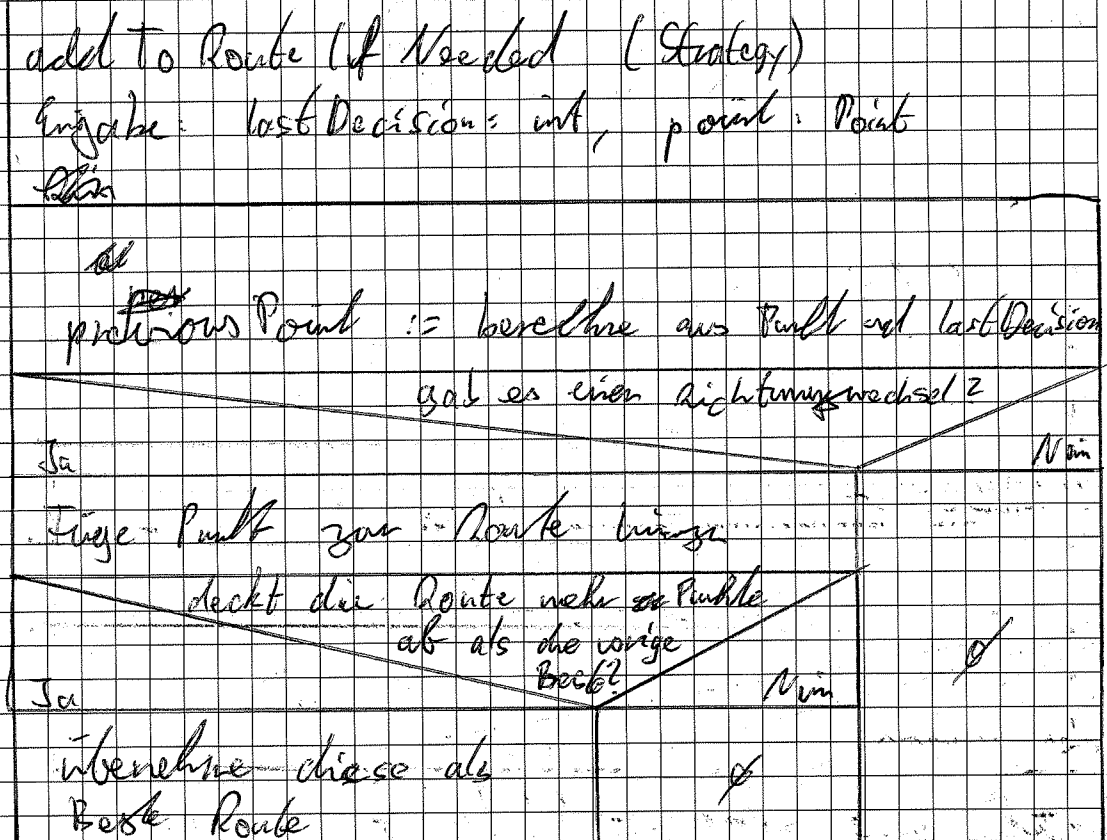 add To Route If Needed (Strategy)
Eingabe: lastDecision: int, point: Point
previousPoint := berechne aus Punkt und lastDecision
gab es einen Richtungswechsel?
Ja
Nein
Füge Punkt zur Route hinzu
deckt die Route mehr Punkte
ab als die vorige
Beste?
Ja
Nein
ø
übernehme diese als
Beste Route
ø